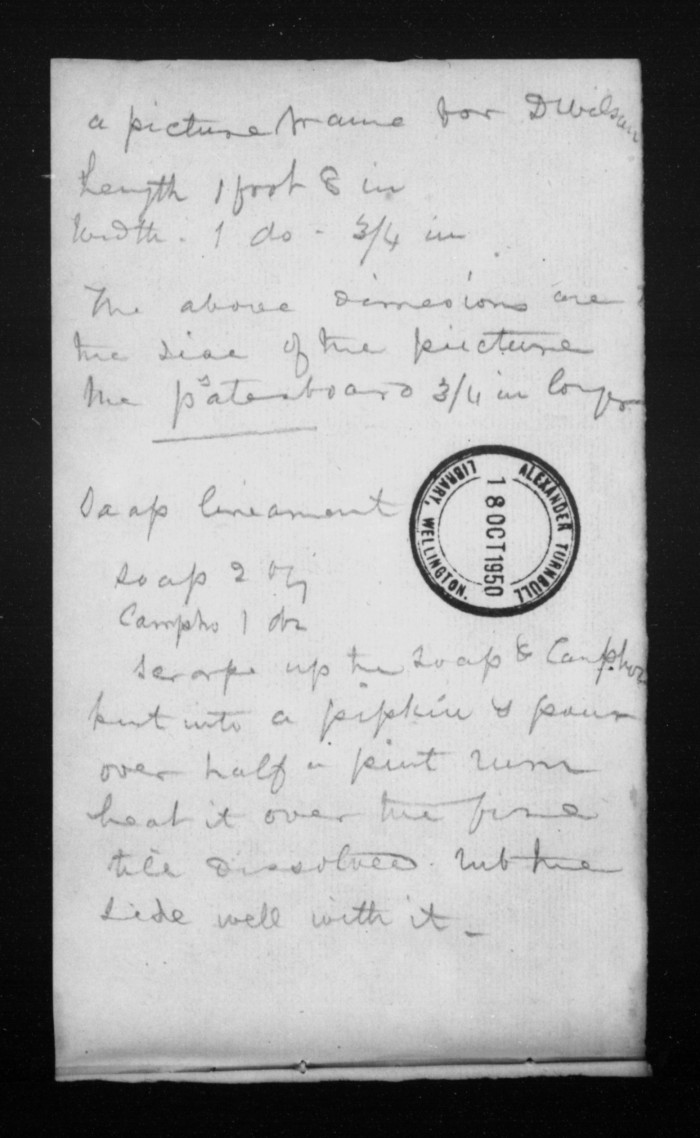 a picture frame for D Wilson
Length 1 foot 8 in
Width - 1 do - 3/4 in
The above dimesions are
the size of the picture
the pastesboard 3/4 in longer
Soap lineament
ALEXANDER TURNBULL
LIBRARY, WELLINGTON.
18 OCT 1950
soap 2 oz
Campho 1 do
scrape up the soap & Camphor
put into a pipkin & pour
over half a pint rum
heat it over the fire
till dissolved. rub the
side well with it -